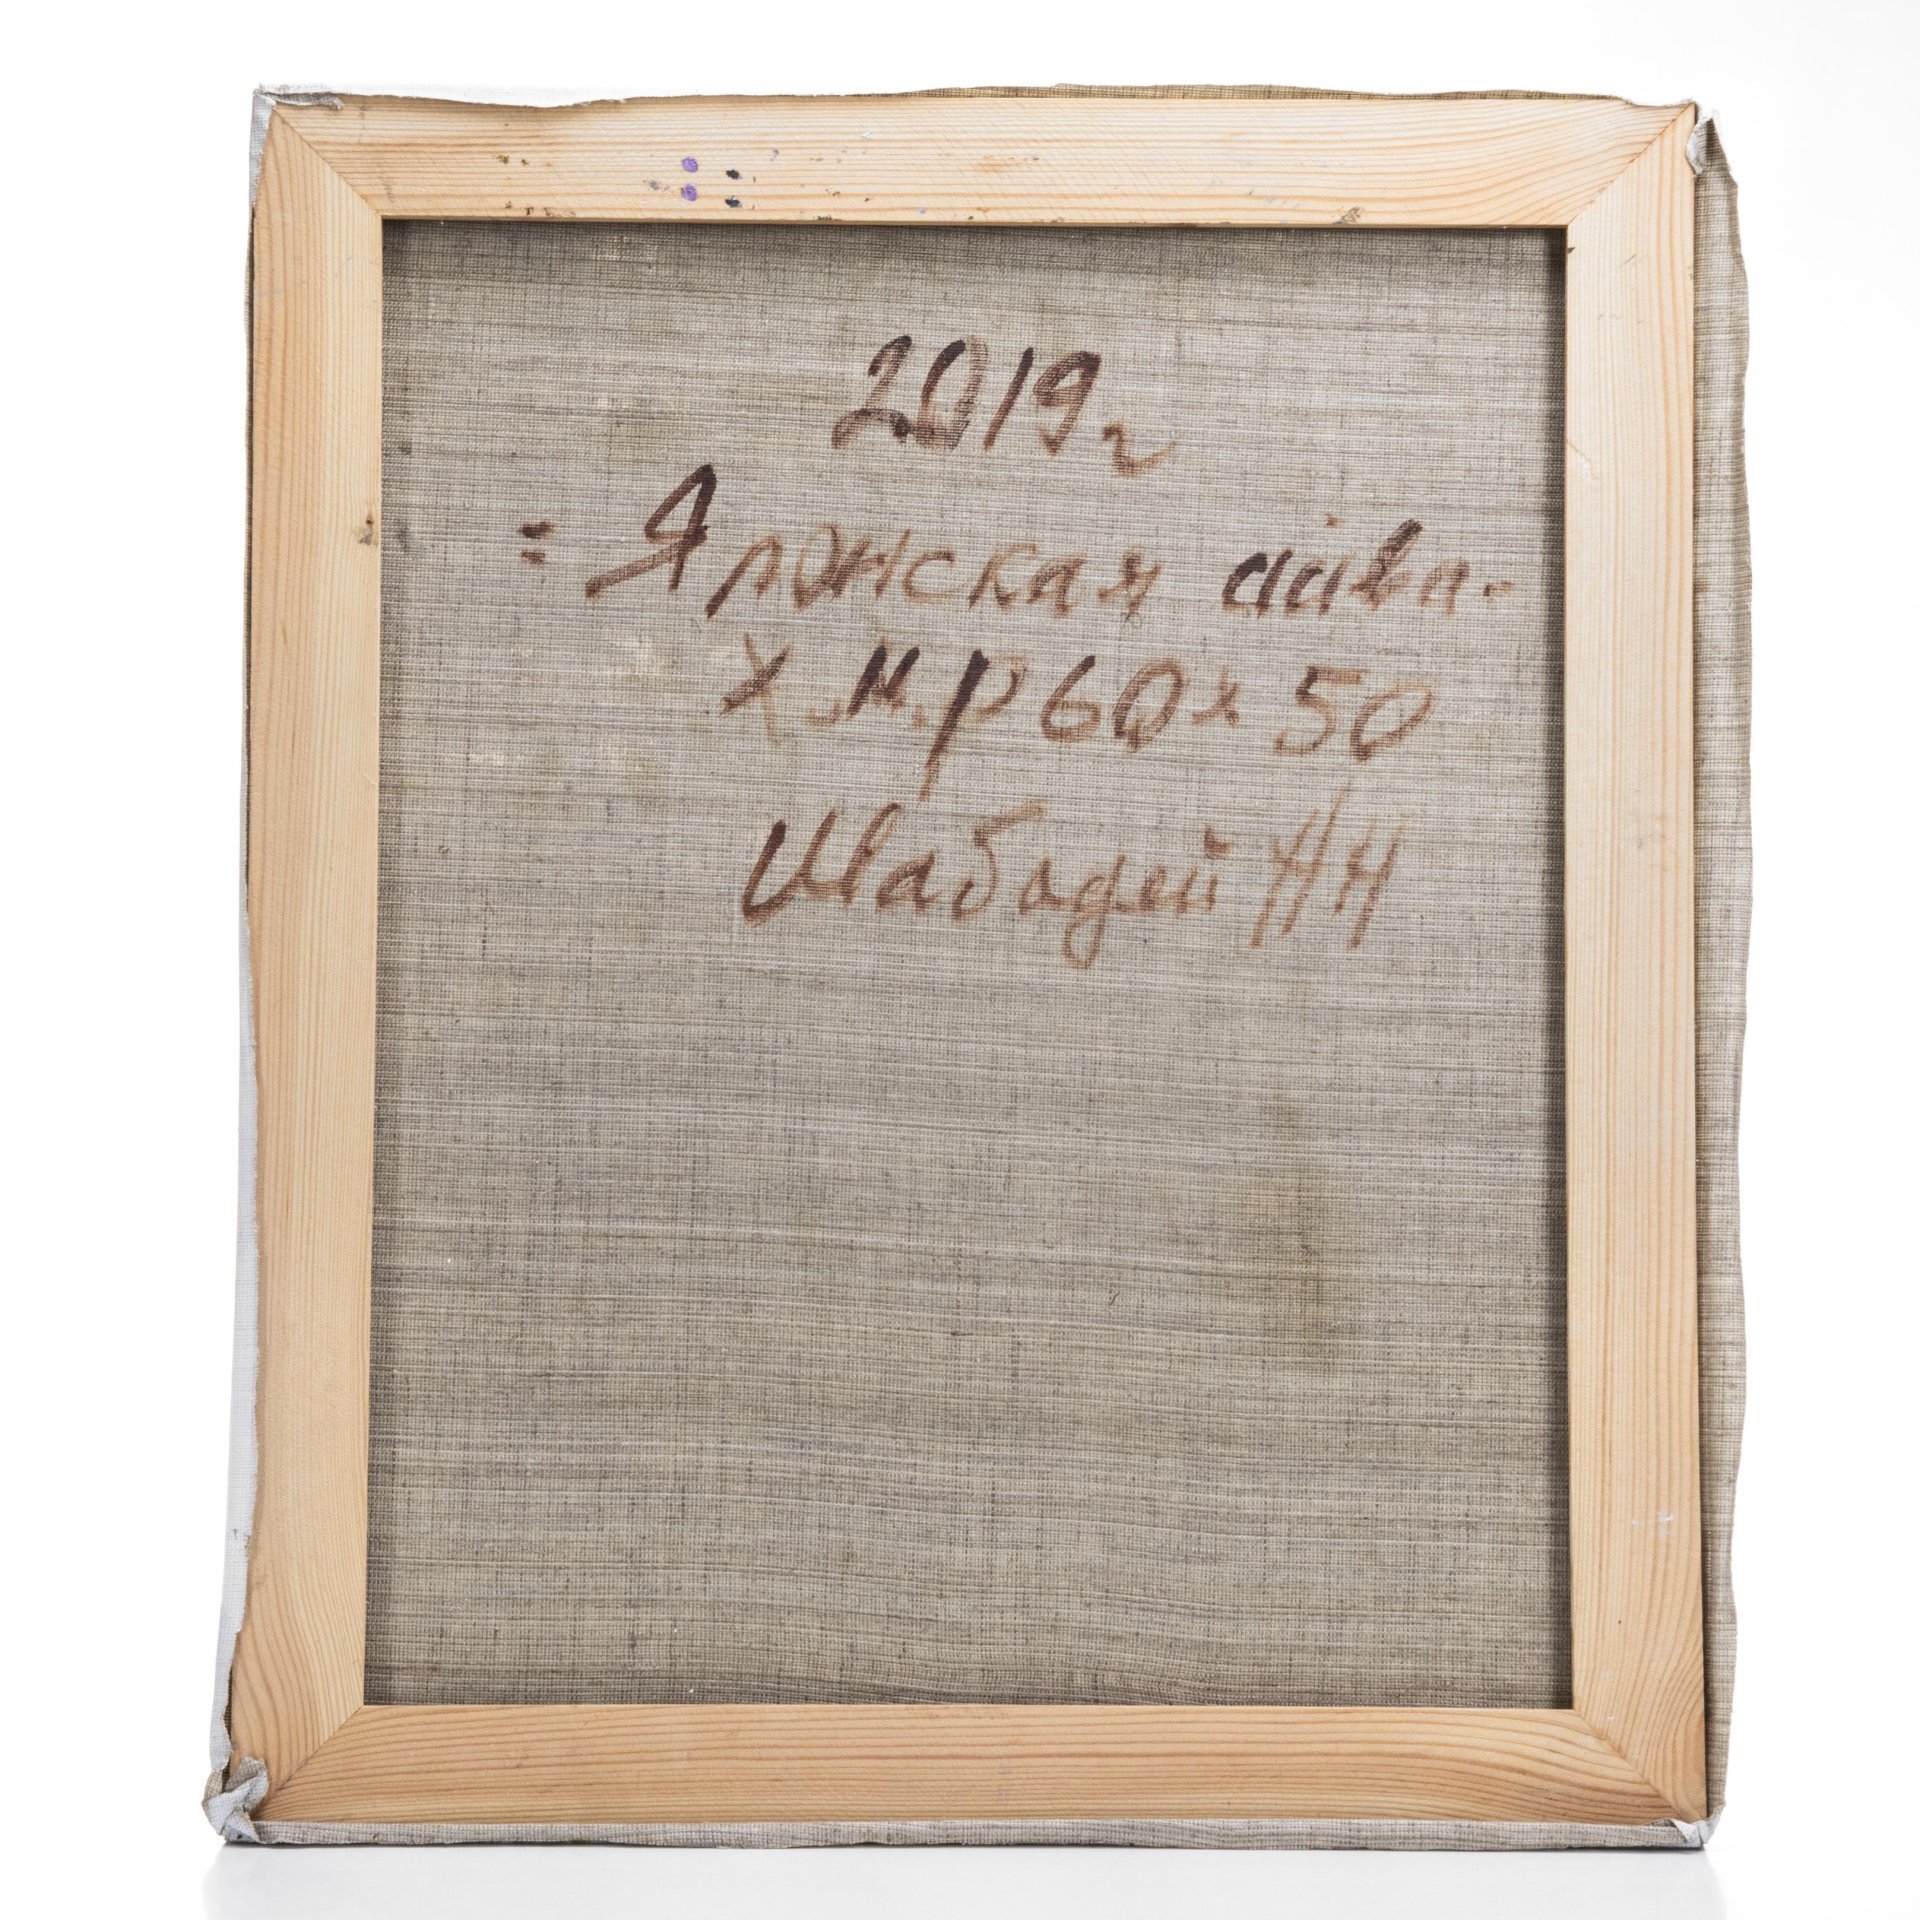 2019г
= Японская айва-
х.м.р 60х50
Швабодей НН